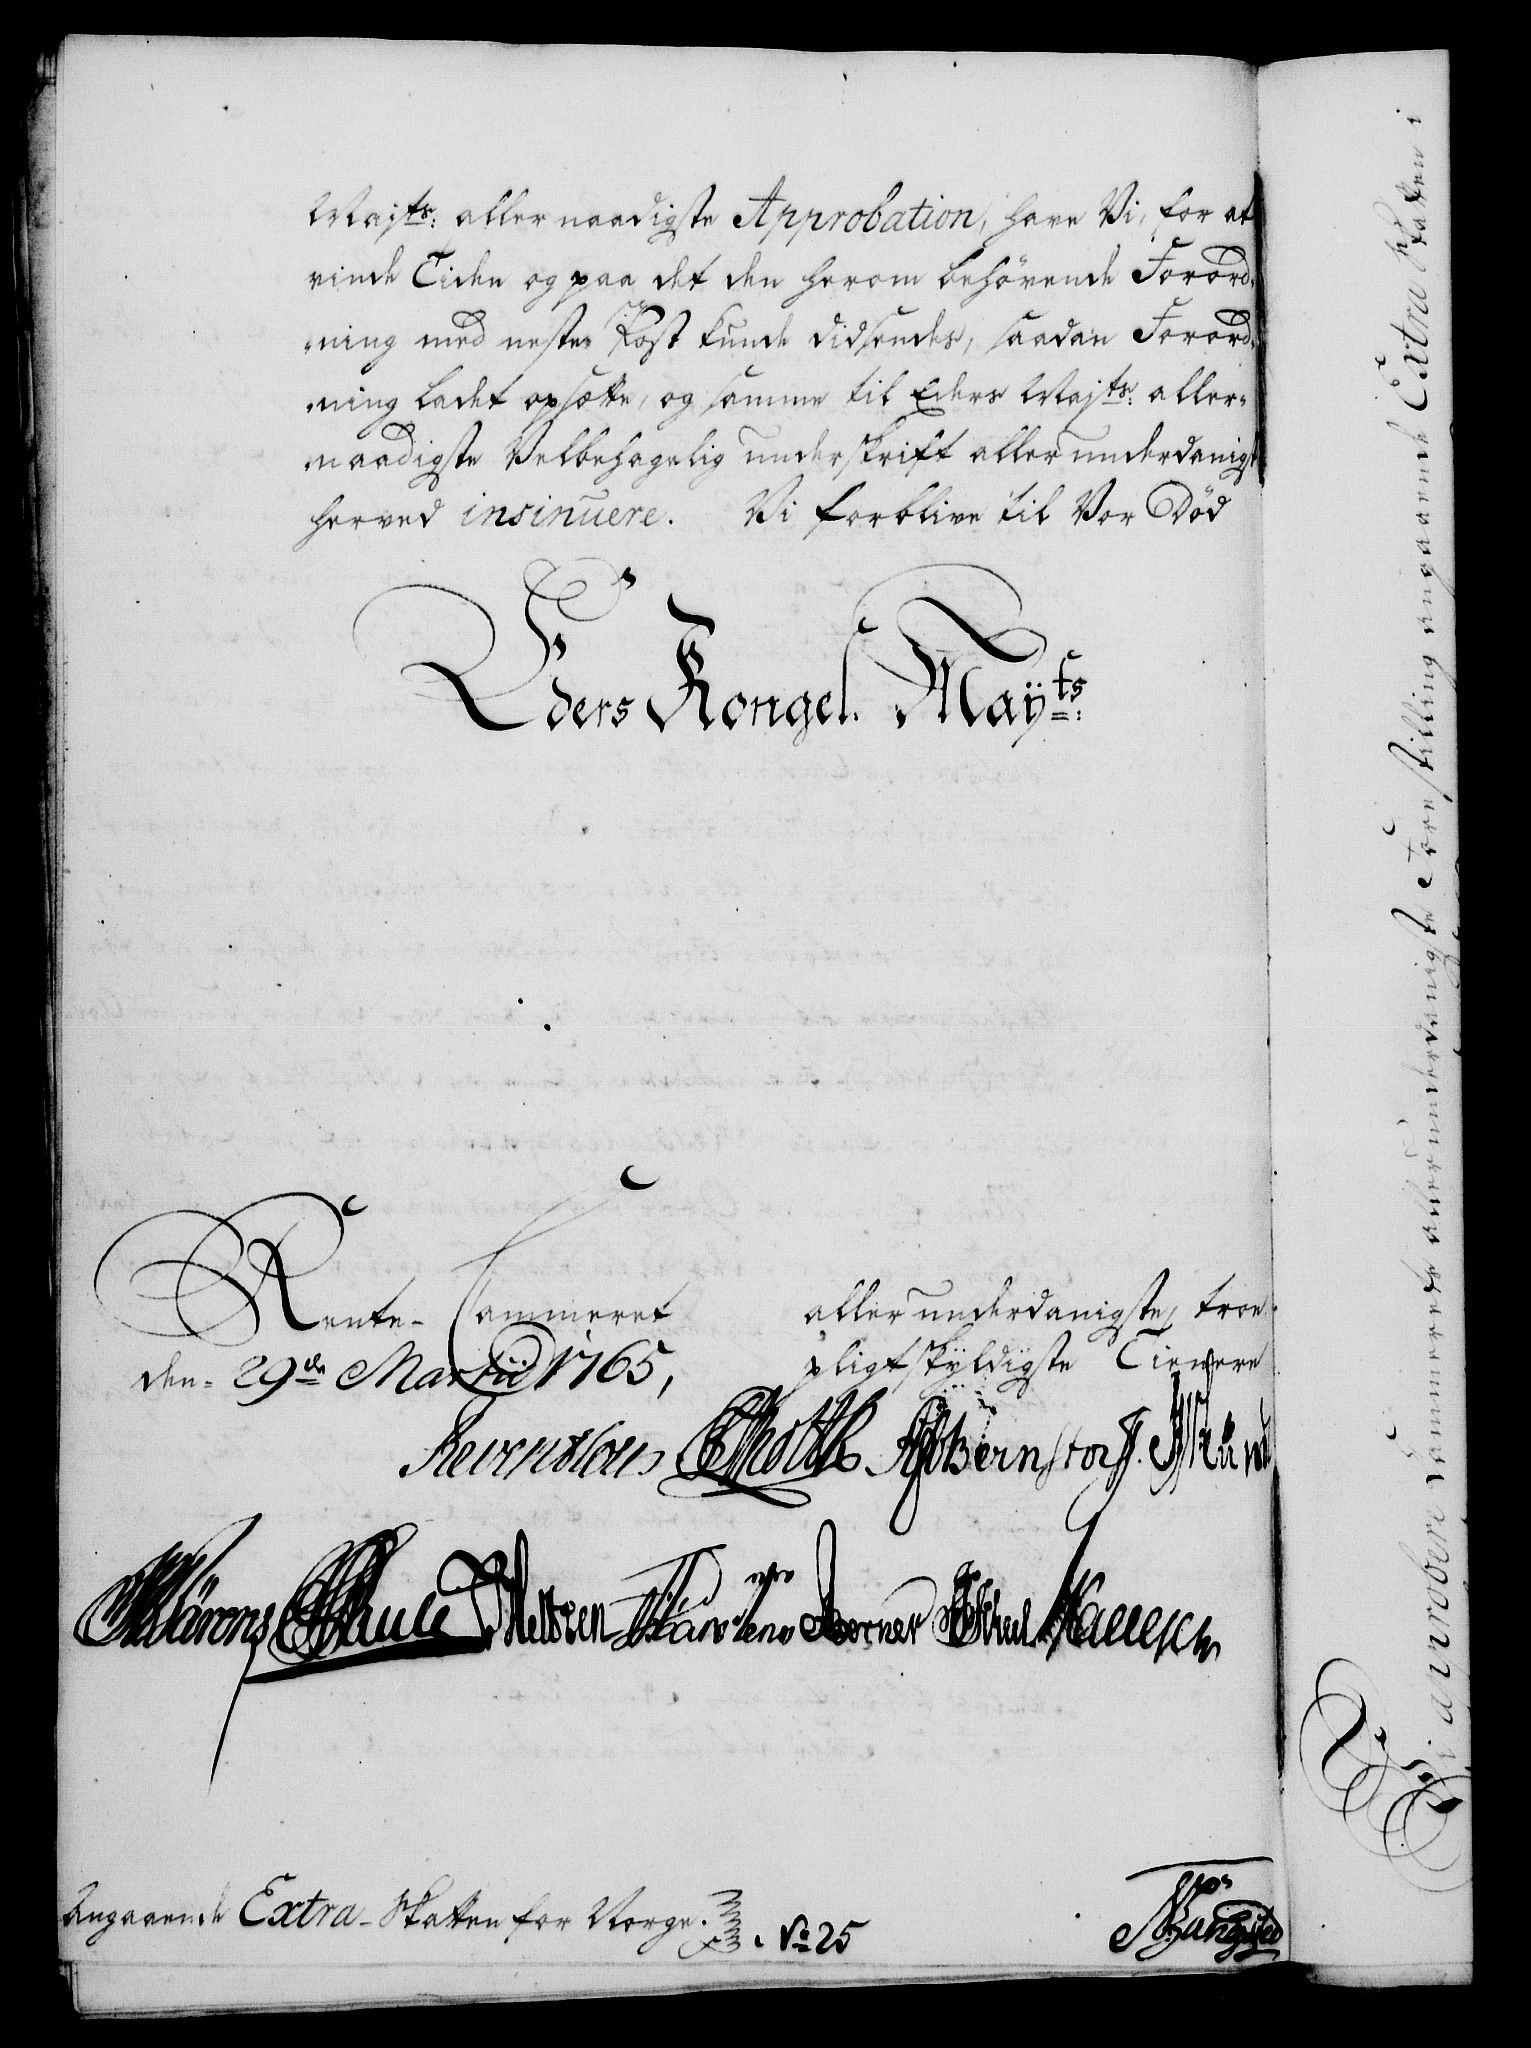 Majts: allernaadigste Approbation, have Vi, for at
vinde Tiden og paa det den herom behövende Forord,
,ning med neste Post kunde didsendes, saadan Forord,
,ning ladet opsætte, og samme til Eders Majts: aller,
,naadigste Velbehagelig underskrift allerunderdanigst
herved insinuere. Vi forblive til Vor Död
Eders Kongel. Maÿts:
Rente-Cammeret
den 29de Martii 1765,
allerunderdanigste, troe
pligtskÿldigste Tienere
Reventlou Thott Bernstorff.
Schmeltzen Berner
Angaaende Extra-Skatten for Norge.
No 25
Bangsted
Vi approbere Cammerets allerunderdanigste Forestilling angaaende Extra Skatten i